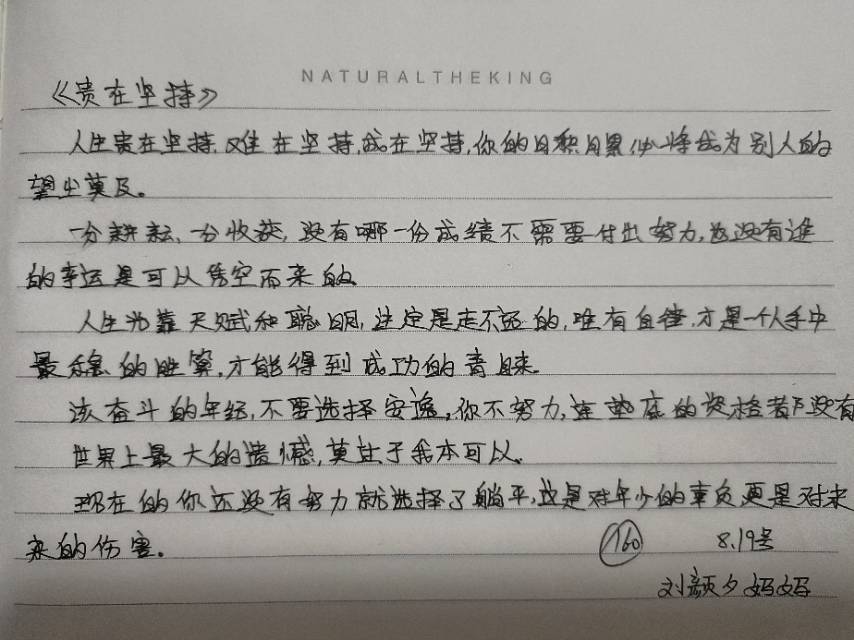 NATURALTHEKING
《贵在坚持》
人生贵在坚持,难在坚持,成在坚持,你的日积月累,必将成为别人的
望尘莫及。
一分耕耘,一分收获,没有哪一份成绩不需要付出努力,也没有谁
的幸运是可以凭空而来的
人生光靠天赋和聪明,注定是走不远的,唯有自律,才是一个人手中
最稳的胜算,才能得到成功的青睐。
该奋斗的年纪,不要选择安逸,你不努力,连垫底的资格都没有
世界上最大的遗憾,莫过于我本可以。
现在的你还没有努力就选择了躺平,这是对年少的辜负更是对未
来的伤害。
160 8.19号
刘颜夕妈妈